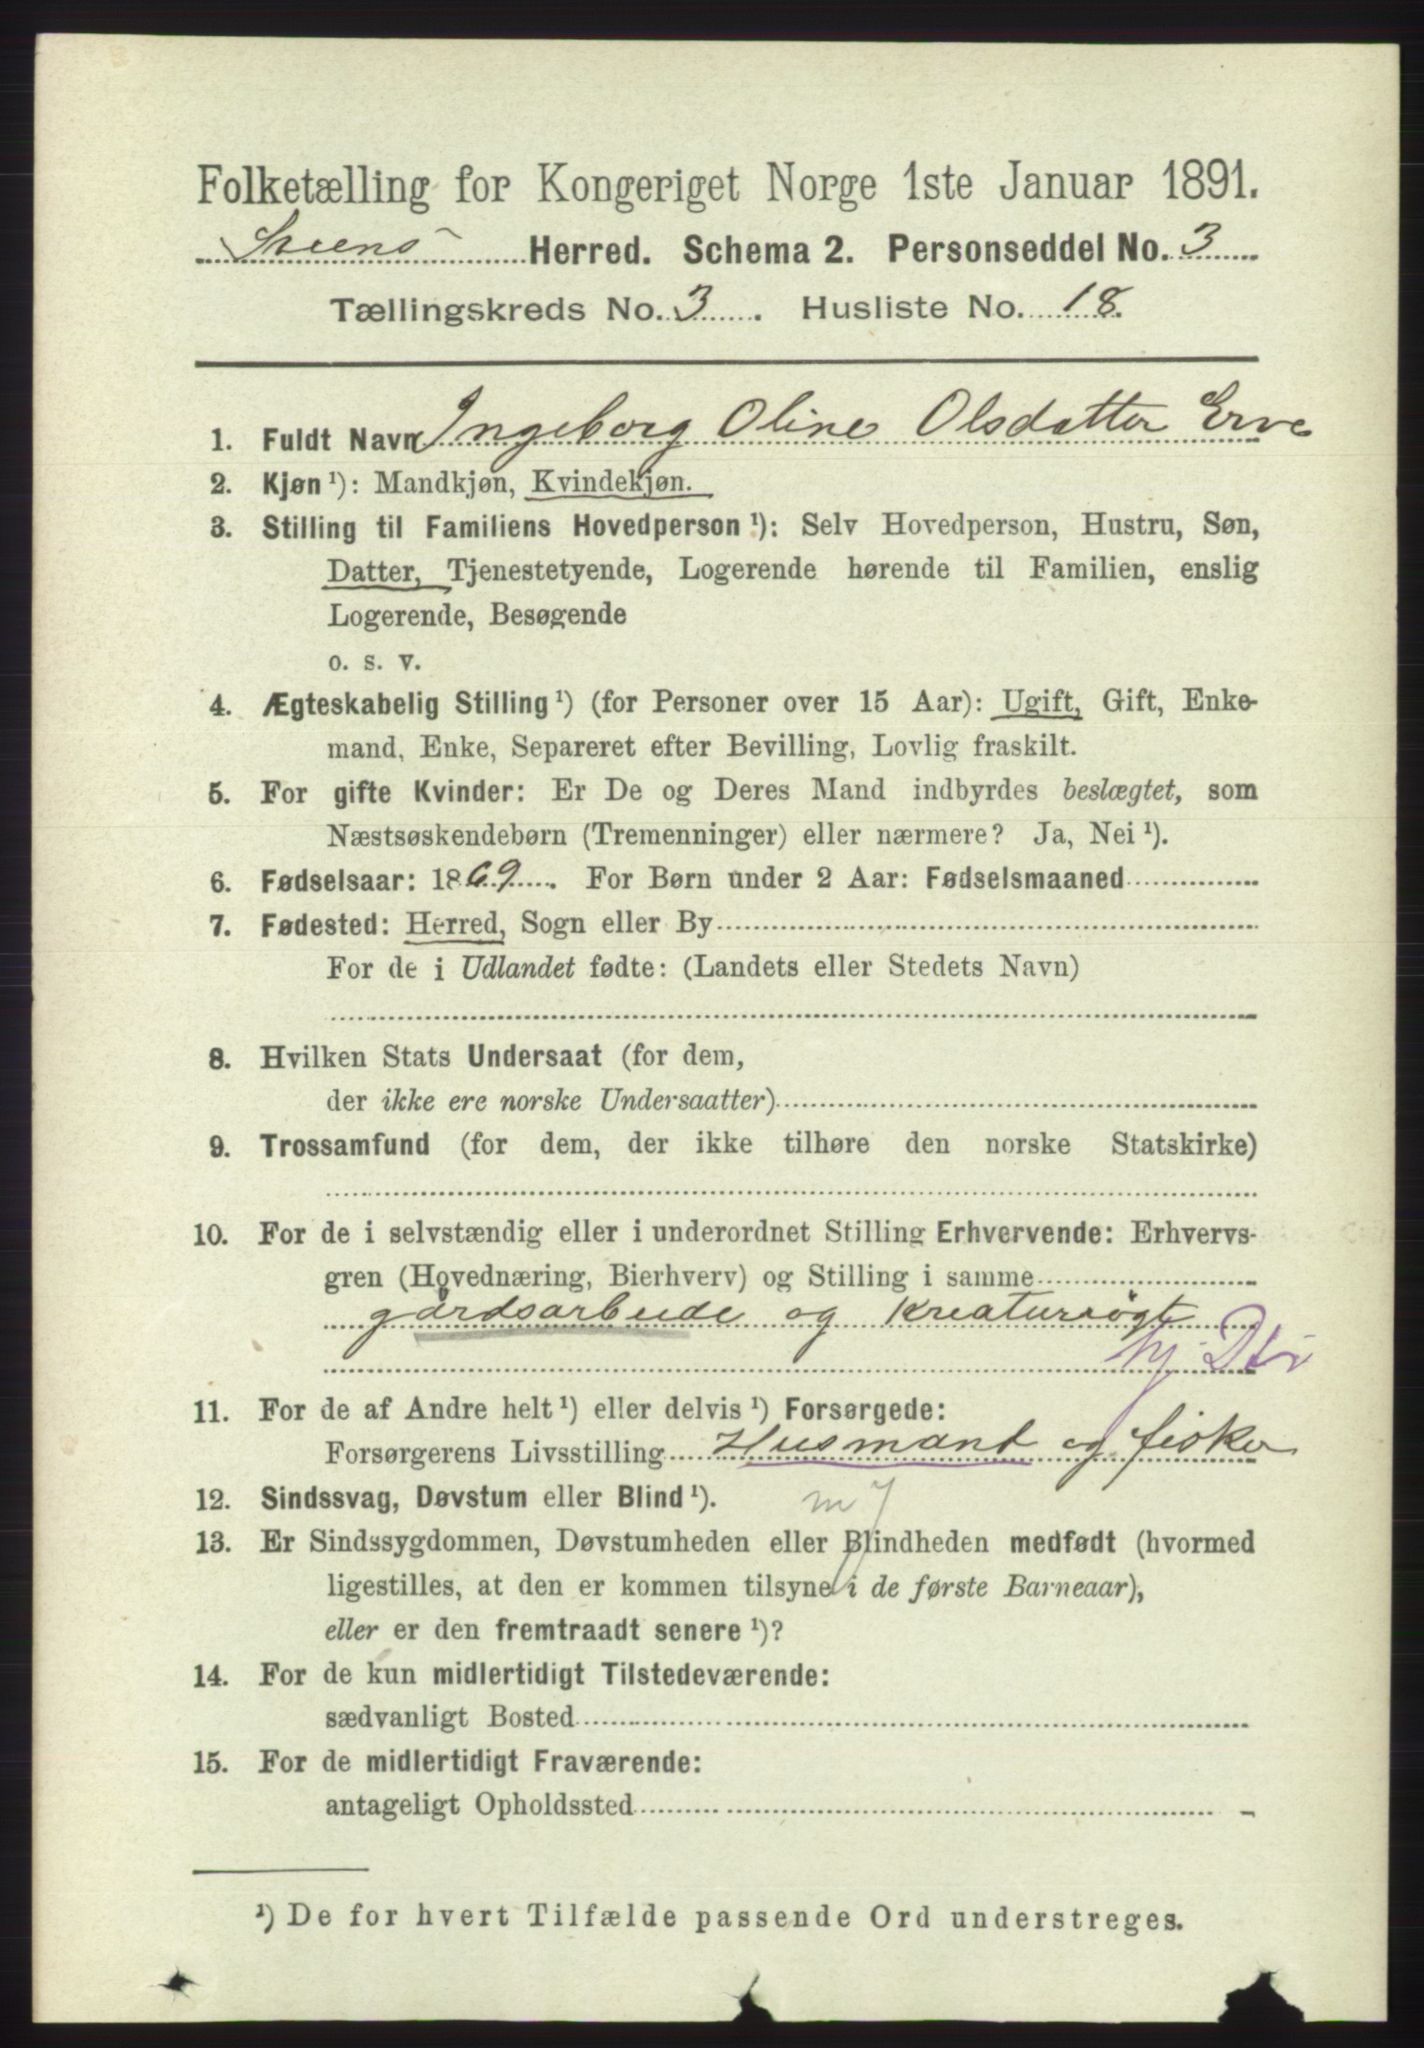 Folketælling for Kongeriget Norge 1ste Januar 1891.
Herred. Schema 2. Personseddel No. 3
Tællingskreds No. 3. Husliste No. 18.
1. Fuldt Navn Ingeborg Oline Olsdatter Erve
2. Kjøn ¹): Mandkjøn, Kvindekjøn.
3. Stilling til Familiens Hovedperson ¹): Selv Hovedperson, Hustru, Søn,
Datter, Tjenestetyende, Logerende hørende til Familien, enslig
Logerende, Besøgende
o. s. v.
4. Ægteskabelig Stilling ¹) (for Personer over 15 Aar): Ugift, Gift, Enke-
mand, Enke, Separeret efter Bevilling, Lovlig fraskilt.
5. For gifte Kvinder: Er De og Deres Mand indbyrdes beslægtet, som
Næstsøskendebørn (Tremenninger) eller nærmere? Ja, Nei ¹).
6. Fødselsaar: 1869. For Børn under 2 Aar: Fødselsmaaned
7. Fødested: Herred, Sogn eller By
For de i Udlandet fødte: (Landets eller Stedets Navn)
8. Hvilken Stats Undersaat (for dem,
der ikke ere norske Undersaatter)
9. Trossamfund (for dem, der ikke tilhøre den norske Statskirke)
10. For de i selvstændig eller i underordnet Stilling Erhvervende: Erhvervs-
gren (Hovednæring, Bierhverv) og Stilling i samme
gårdsarbeide og Kreaturrøgt
11. For de af Andre helt ¹) eller delvis ¹) Forsørgede:
Forsørgerens Livsstilling Husmand og fisker
12. Sindssvag, Døvstum eller Blind ¹).
13. Er Sindssygdommen, Døvstumheden eller Blindheden medfødt (hvormed
ligestilles, at den er kommen tilsyne i de første Barneaar),
eller er den fremtraadt senere ¹)?
14. For de kun midlertidigt Tilstedeværende:
sædvanligt Bosted
15. For de midlertidigt Fraværende:
antageligt Opholdssted
¹) De for hvert Tilfælde passende Ord understreges.